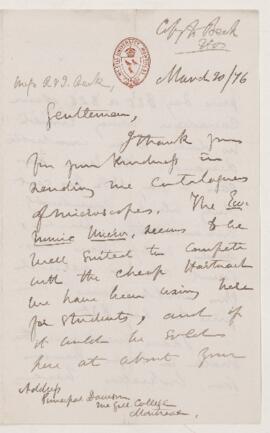 Copy to Beck
March 20/76
Messrs R & J. Beck,
Gentlemen,
I thank you
for your kindness in
sending me catalogues
of microscopes. The Eco-
nomic Micro. seems to be
well suited to compete
with the cheap Hartnack
we have been using here
for students, and if
it could be sold
here at about your
Address
Principal Dawson
McGill College
Montreal.